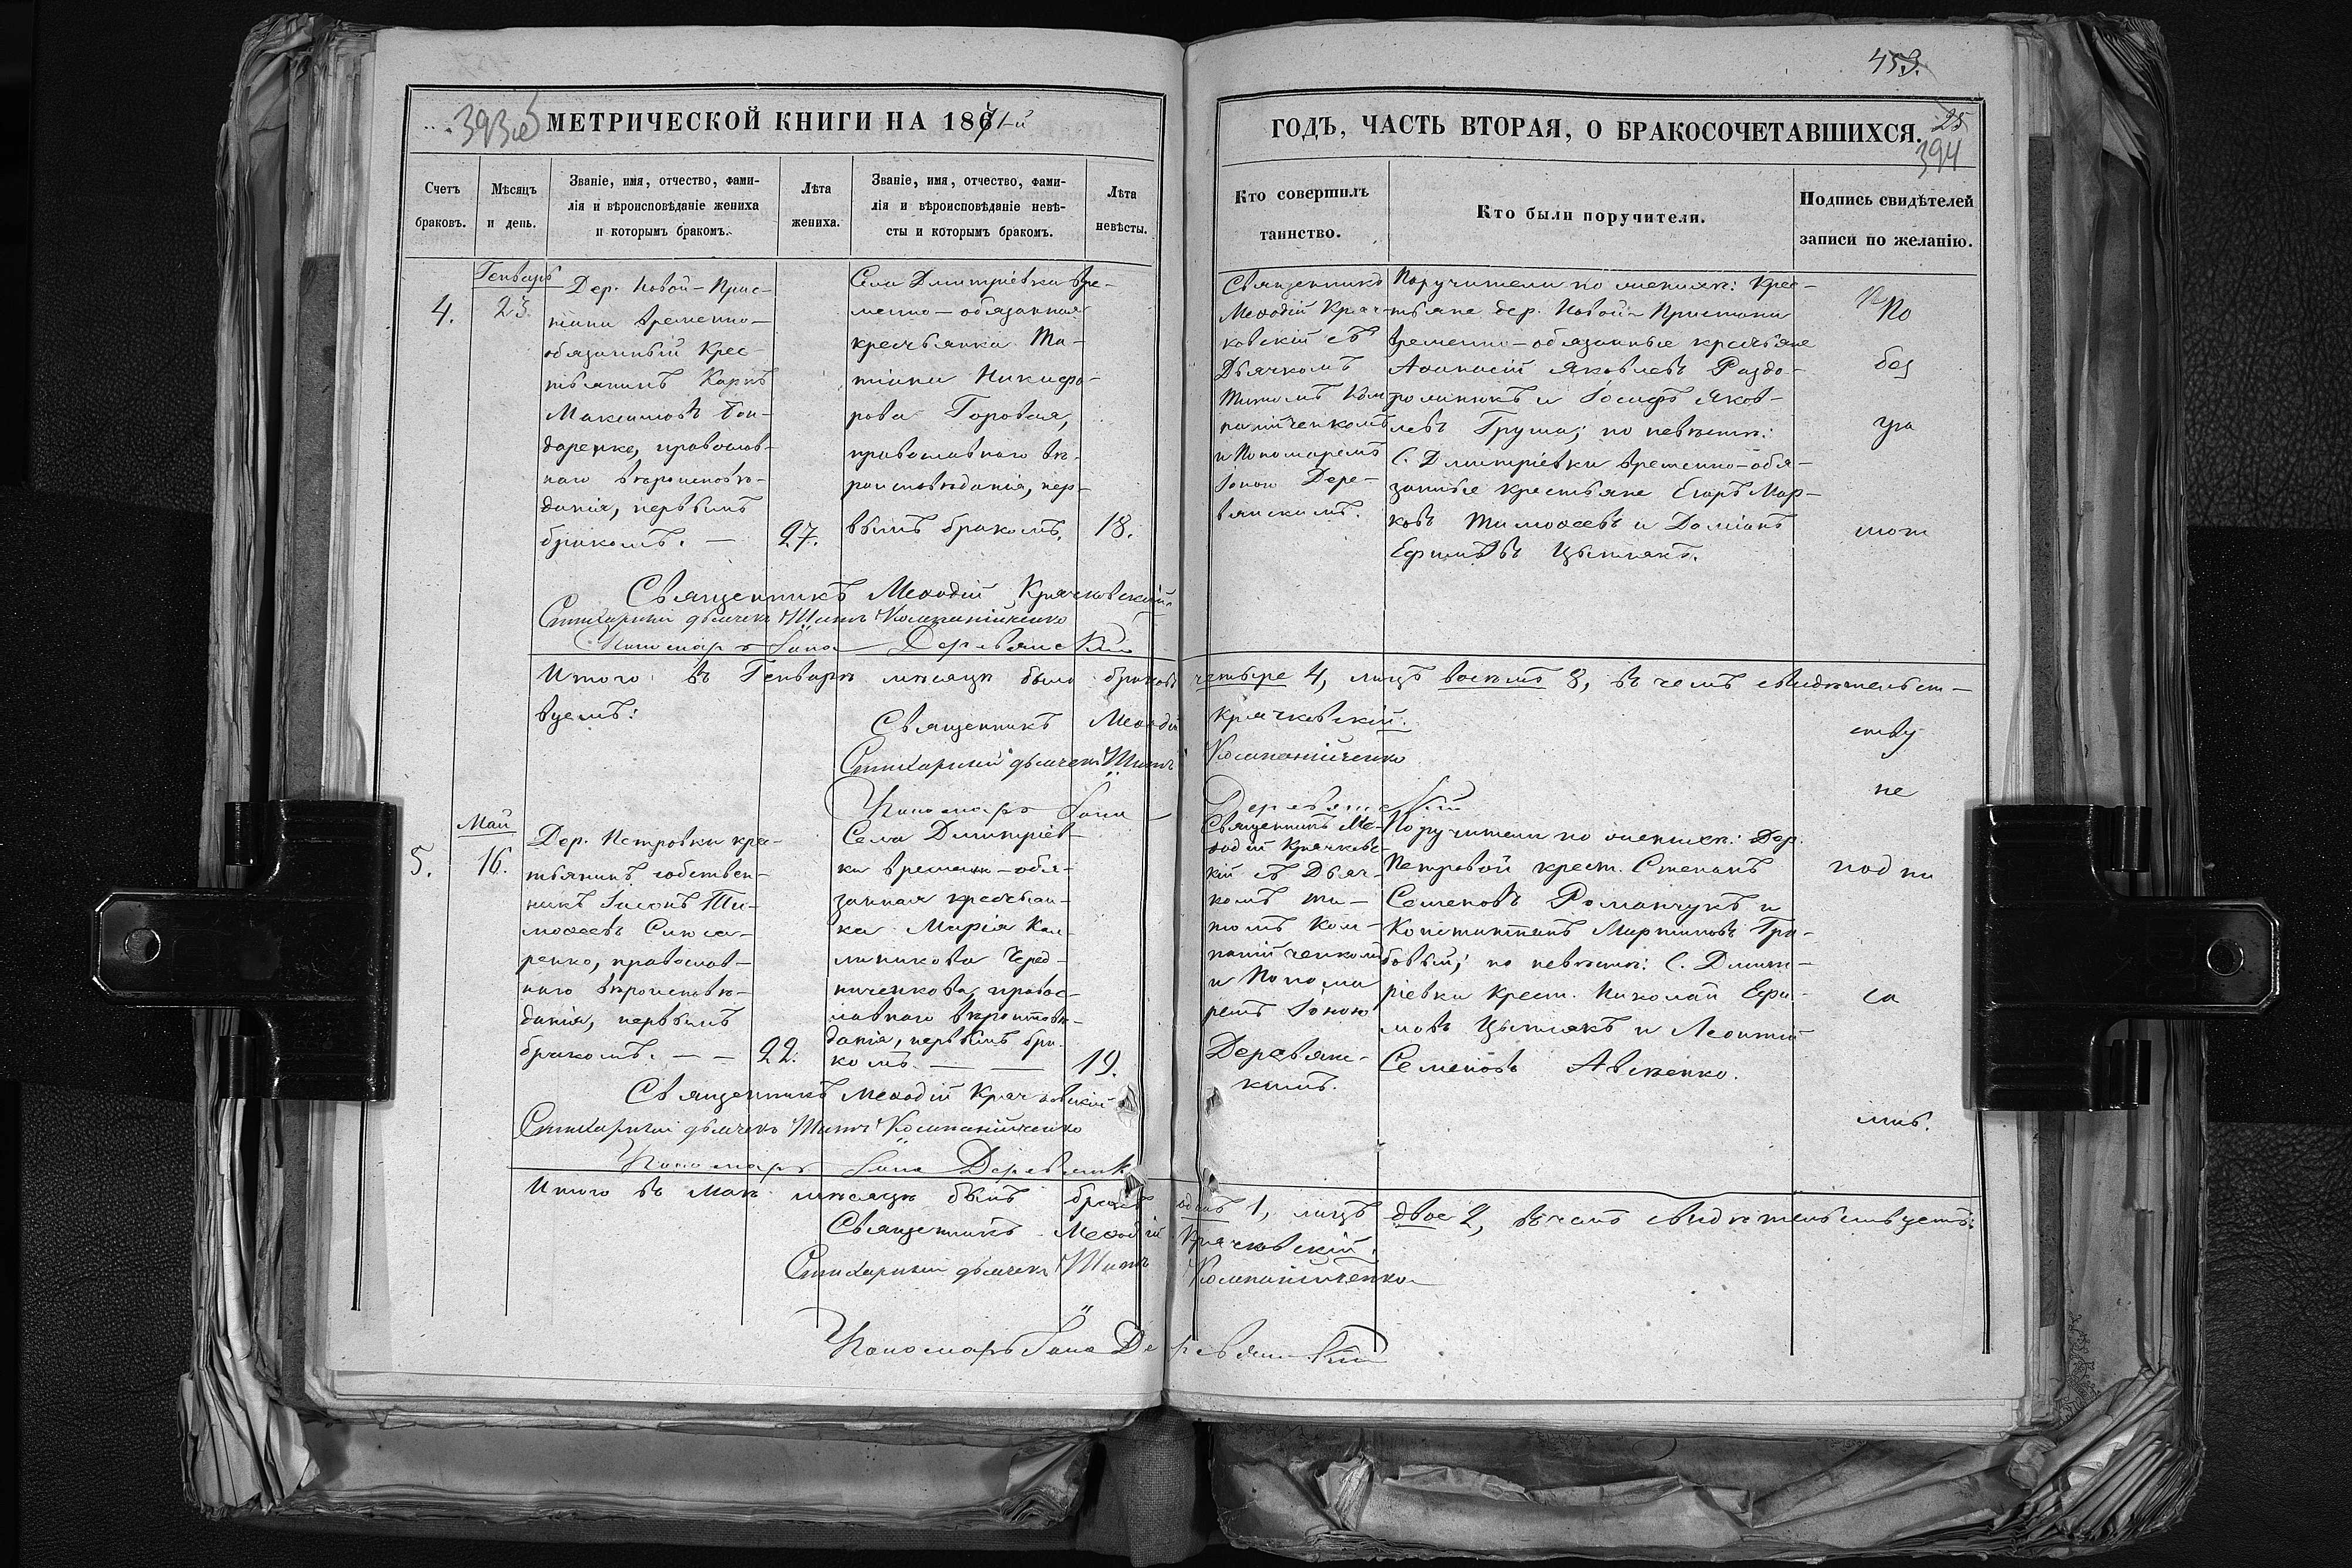 453.
393 об
МЕТРИЧЕСКОЙ КНИГИ НА 1871-й
ГОДЪ, ЧАСТЬ ВТОРАЯ, О БРАКОСОЧЕТАВШИХСЯ.
25
394
Счетъ
браковъ.
Мѣсяцъ
и день.
Званіе, имя, отчество, фами-
лія и вѣроисповѣданіе жениха
и которымъ бракомъ.
Лѣта
жениха.
Званіе, имя, отчество, фами-
лія и вѣроисповѣданіе невѣ-
сты и которымъ бракомъ.
Лѣта
невѣсты.
Кто совершилъ
таинство.
Кто были поручители.
Подпись свидѣтелей
записи по желанію.
4.
Генварь
23.
Дер. Новой-Прис-
тани временно-
обязанный Крес-
тьянинъ Карпъ
Максимовъ Бон-
даренко, православ-
наго вѣроисповѣ-
данія, первымъ
бракомъ. —
27.
Села Дмитріевки вре-
менно-обязанная
крестьянка Та-
тіана Никифо-
рова Горовая,
православнаго вѣ-
роисповѣданія, пер-
вымъ бракомъ.
18.
Священникъ
Меѳодій Крач-
ковскій съ
Дьячкомъ
Титомъ Ком-
панійченкомъ
и Пономаремъ
Іоною Дере-
вянскимъ.
Поручители по женихѣ: Крес-
тьяне дер. Новой-Пристани
временно-обязанные крестьяне
Аѳанасій Яковлевъ Раздо-
ролинюкъ и Іосифъ Яков-
левъ Груша; по невѣстѣ:
С. Дмитріевки временно-обя-
занные крестьяне Егоръ Мар-
ковъ Тимоѳеевъ и Даміанъ
Ефимовъ Цымлякъ.
По
без
гра
мот
ству
не
подпи
са
лись.
Священникъ Меѳодій Крачковскій
Стихарный дьячекъ Титъ Компанійченко
Пономарь Іона Деревянскій
Итого въ Генварѣ мѣсяцѣ было браковъ четыре 4, лицъ восемь 8, въ чемъ свидѣтельст-
вуемъ:
Священникъ Меѳодій Крачковскій.
Стихарный дьячекъ Титъ Компанійченко
Пономарь Іона Деревянскій
5.
Май
16.
Дер. Петровки крес-
тьянинъ собствен-
никъ Симонъ Ти-
моѳеевъ Слюса-
ренко, православ-
наго вѣроисповѣ-
данія, первымъ
бракомъ. — —
22.
Села Дмитріев-
ки временно-обя-
занная крестьян-
ка Марія Кал-
линикова Черед-
ниченкова, правос-
лавнаго вѣроисповѣ-
данія, первымъ бра-
комъ. — —
19.
Священникъ Ме-
ѳодій Крачковс-
кій съ Дьяч-
комъ Ти-
томъ Ком-
панійченкомъ
и Понома
ремъ Іоною
Деревянс-
кимъ.
Поручители по женихѣ: Дер.
Петровой крест. Степанъ
Семеновъ Романчукъ и
Константинъ Мартиновъ Гри-
бовый; по невѣстѣ: С. Дмит-
ріевки Крест. Николай Ефи-
мовъ Цымлякъ и Леонтій
Семеновъ Авсѣенко.
Священникъ Меѳодій Крачковскій
Стихарный дьячекъ Титъ Компанійченко
Пономарь Іона Деревянск
Итого въ Маѣ мѣсяцѣ былъ бракъ одинъ 1, лицъ двое 2, въ чемъ свидѣтельствуемъ:
Священникъ Меѳодій Крачковскій.
Стихарный дьячекъ Титъ Компанійченко
Пономарь Іона Деревянскій